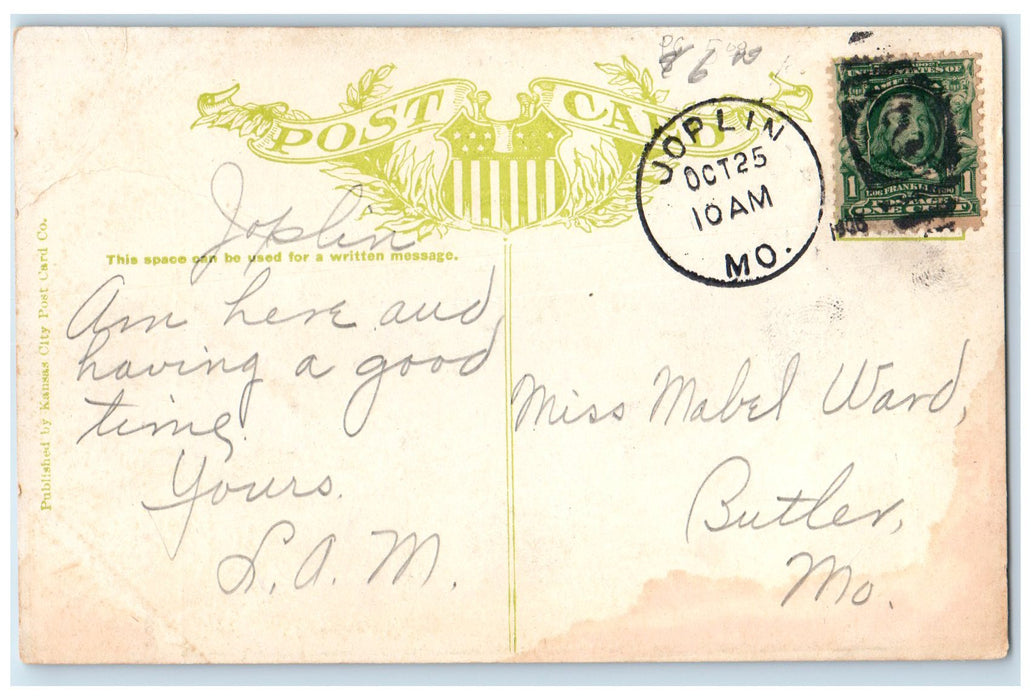 POST CARD
JOPLIN
OCT 25
10 AM
MO.
UNITED STATES OF
AMERICA
1 FRANKLIN 1
POSTAGE
ONE CENT
Joplin
This space can be used for a written message.
Am here and
having a good
time.
Yours.
L. A. M.
Miss Mabel Ward,
Butler,
Mo.
Published by Kansas City Post Card Co.